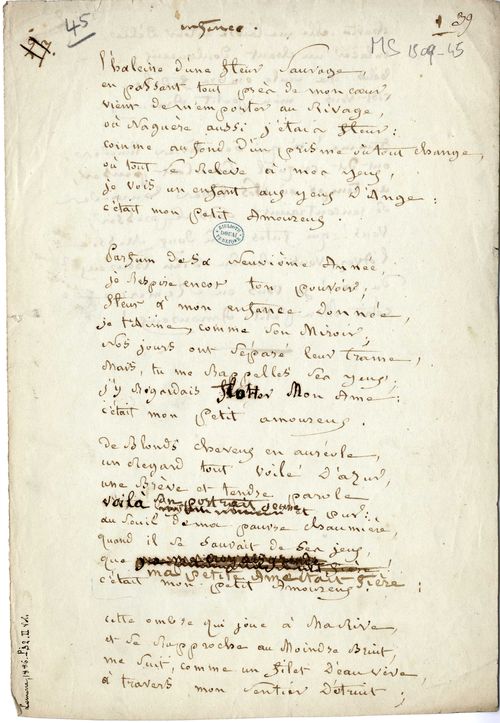 45
39
MS 1509-45
enfance.
l'haleine d'une fleur sauvage,
en passant tout près de mon cœur,
vient de m'emporter au Rivage,
où Naguère aussi j'étais fleur :
comme au fond d'un prisme où tout change,
où tout se Relève à mes yeux,
je vois un enfant aux yeux D'Ange :
c'était mon petit Amoureux
BIBLIOTH DOUAI
Parfum de Sa Neuvième Année,
je Respire encor ton pouvoir,
fleur à mon enfance Donnée,
je t'Aime, comme Son Miroir,
nos jours ont séparé leur trame,
Mais, tu me Rappelles Ses yeux ;
j'y Regardais flotter Mon Ame :
c'était mon petit amoureux.
de Blonds cheveux en auréole,
un Regard tout voilé D'azur,
une Brève et tendre parole
voilà son portrait jeune et pur :
au Seuil de ma pauvre chaumière,
quand il se Sauvait de Ses jeux,
que
ma petite Ame était fière ;
c'était mon petit Amoureux
cette ombre qui joue à Ma Rive,
et se Rapproche au Moindre Bruit,
me Suit, comme un filet D'eau vive,
à travers mon Sentier Détruit ;